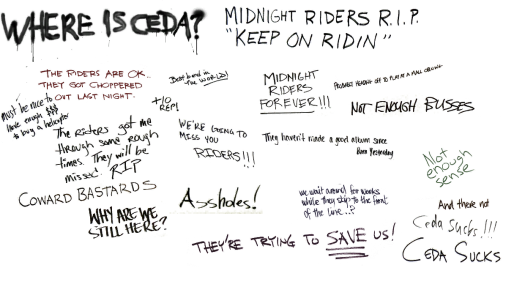 WHERE IS CEDA?
MIDNIGHT RIDERS R.I.P.
"KEEP ON RIDIN"
THE RIDERS ARE OK..
THEY GOT CHOPPERED
OUT LAST NIGHT.
Best band in
the WORLD!
MIDNIGHT
RIDERS
FOREVER!!!
PROBABLY HEADING OFF TO PLAY AT A MALL OPENING
NOT ENOUGH BUSSES
Must be nice to
have enough $$$
to buy a helicopter
+10
REP!
The riders got me
through some rough
times. They will be
missed. RIP
WE'RE GOING TO
MISS YOU
RIDERS!!!
They haven't made a good album since
Born Yesterday
Not
enough
sense
COWARD BASTARDS
Assholes!
WHY ARE WE
STILL HERE?
we wait around for weeks
while they skip to the front
of the line...?
And there not
Ceda Sucks!!!
CEDA SUCKS
THEY'RE TRYING TO SAVE US!